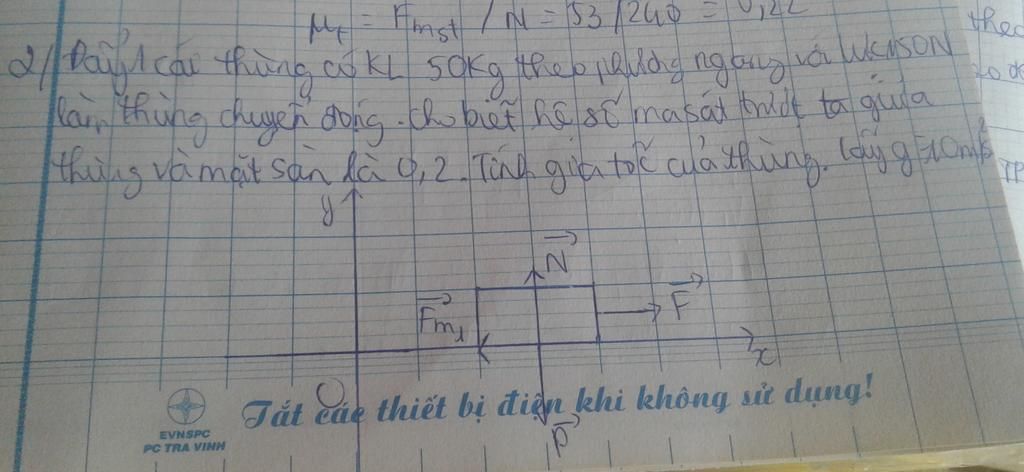 μt = Fmst / N = 53/240 = 0,22
theo
2/ Đẩy 1 cái thùng có KL 50kg theo phương ngang với
làm thùng chuyển động. cho biết hệ số ma sát trượt ta giữa
thùng và mặt sàn là 0,2. Tính gia tốc của thùng. lấy g=10m/s²
y
N
Fms
F
x
O
Tắt các thiết bị điện khi không sử dụng!
P
EVNSPC
PC TRA VINH